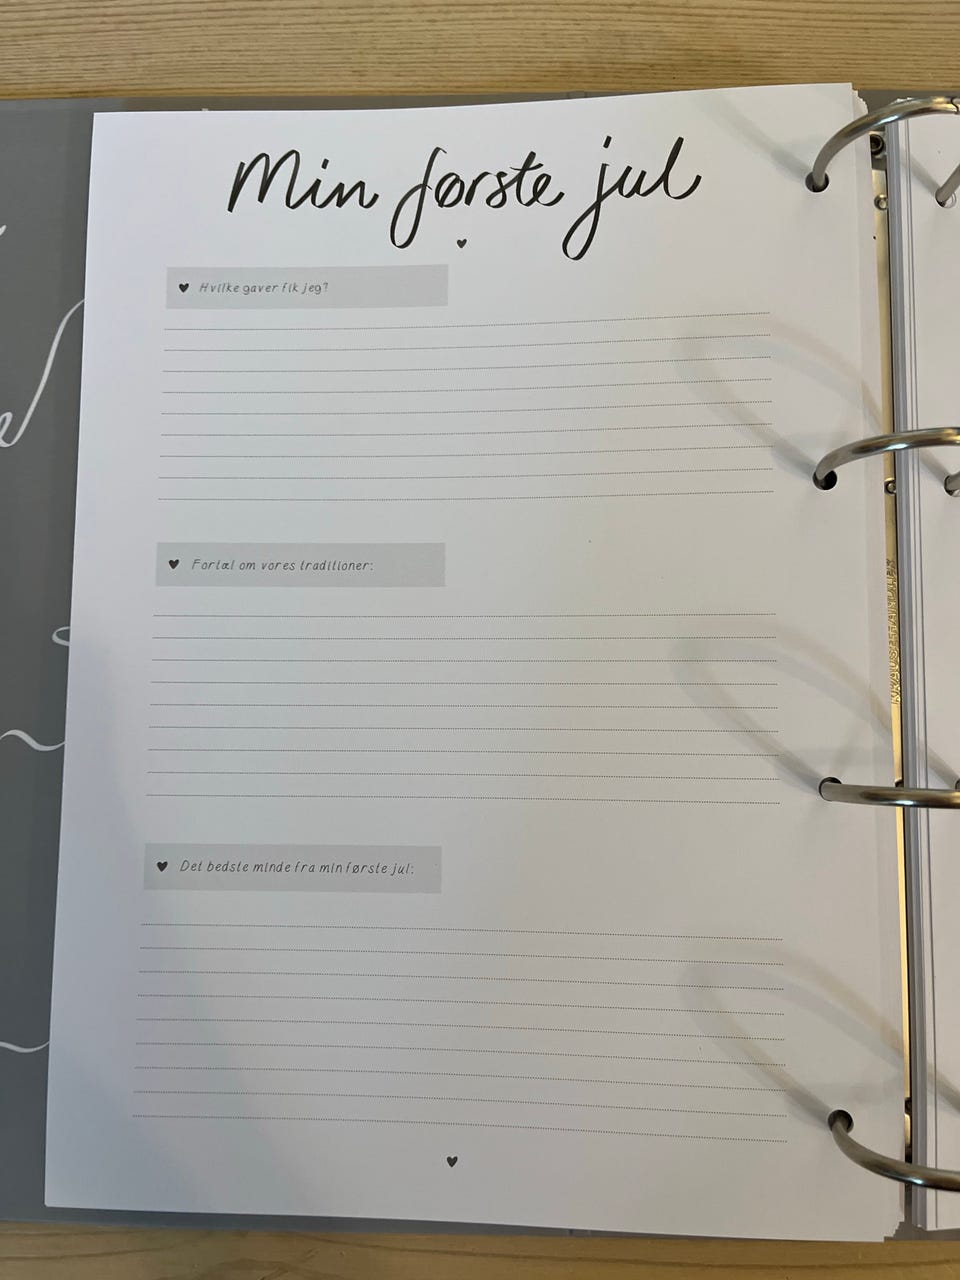 Min første jul
Hvilke gaver fik jeg?
Fortæl om vores traditioner:
Det bedste minde fra min første jul: